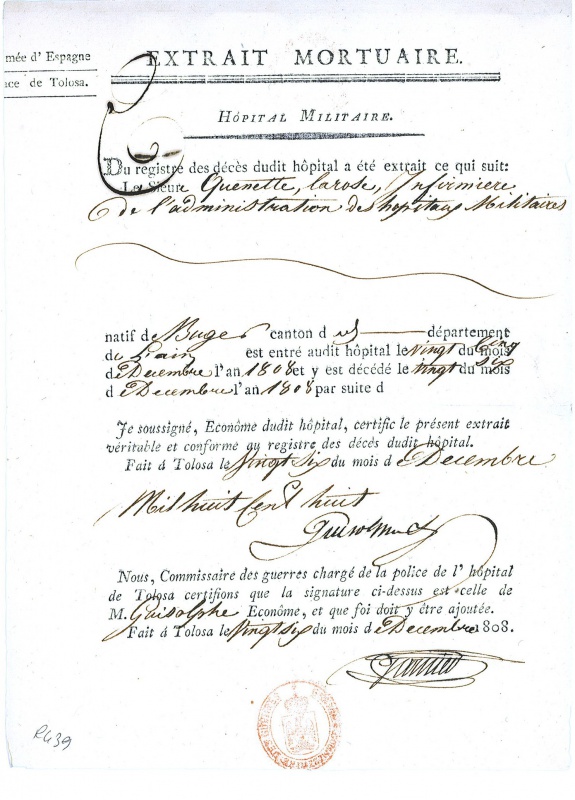 mée d'Espagne
ace de Tolosa.
EXTRAIT MORTUAIRE.
HÔPITAL MILITAIRE.
Du registre des décès dudit hôpital a été extrait ce qui suit:
Le Sieur Quenette, larose, Infirmiere
de l'administration des hopitaux Militaires
natif de Buge canton d département
de l'ain est entré audit hôpital le vingt cinq du mois
d Decembre l'an 1808 et y est décédé le vingt six du mois
d Decembre l'an 1808 par suite d
Je soussigné, Econôme dudit hôpital, certific le présent extrait
véritable et conforme au registre des décès dudit hôpital.
Fait á Tolosa le Vingt Six du mois d Decembre
Mil huit Cent huit
Nous, Commissaire des guerres chargé de la police de l' hôpital
de Tolosa certifions que la signature ci-dessus est celle de
M. Guisolphe Econôme, et que foi doit y être ajoutée.
Fait á Tolosa le Vingt six du mois d Decembre 1808.
R439